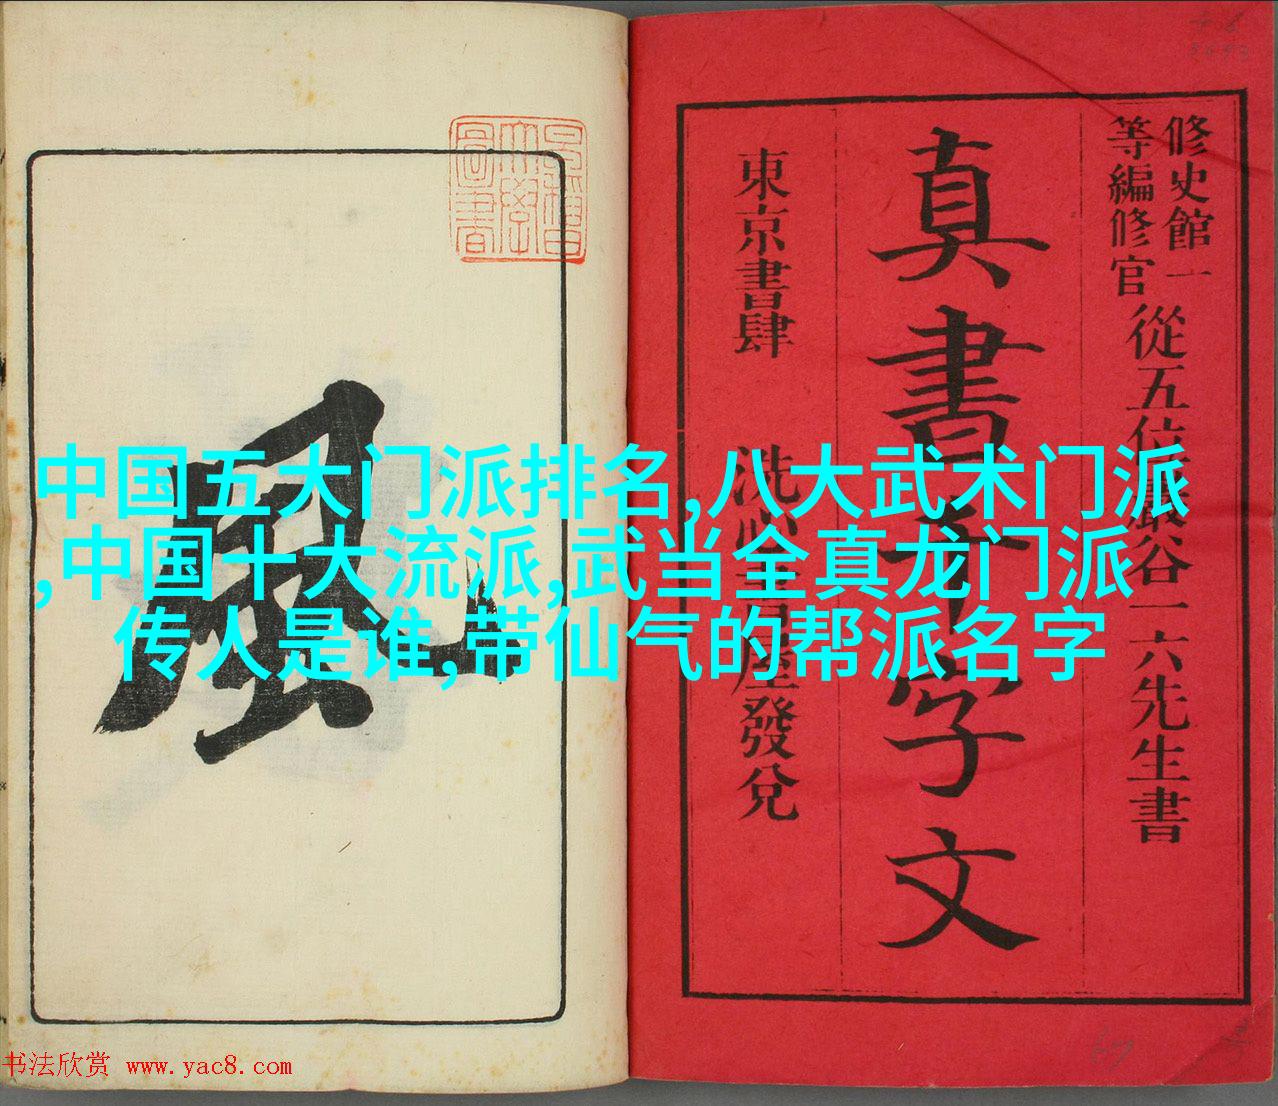 修史館一
等編修官
從五位巖谷一六先生書
真書千字文
東京書肆 洗心書屋發兌
風
中国五大门派排名,八大武术门派
,中国十大流派,武当全真龙门派
传人是谁,带仙气的帮派名字
书法欣赏 www.yac8.com